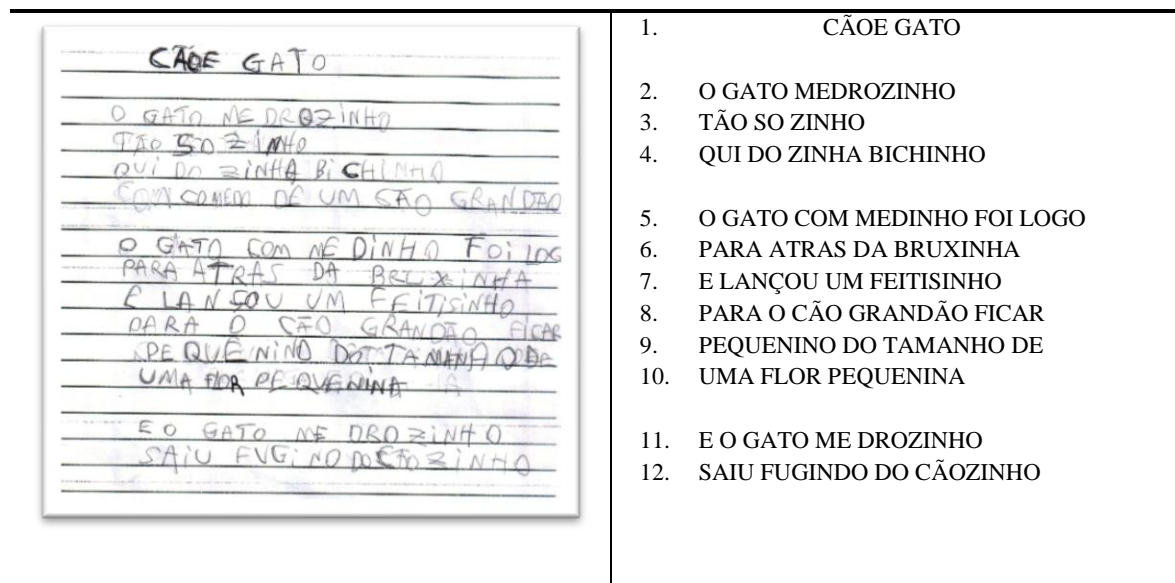 CÃOE GATO
O GATO ME DROZINHO
TÃO SO ZINHO
QUI DO ZINHA BICHINHO
COM DE UM CÃO GRANDÃO
O GATO COM ME DINHO FOI LOG
PARA ATRAS DA BRUXINHA
E LANÇOU UM FEITISINHO
PARA O CÃO GRANDÃO FICAR
PE QUE NINO DO TAMANHO DE
UMA FLOR PE QUENINA
E O GATO ME DROZINHO
SAIU FUGINO DO CÃOZINHO
1. CÃOE GATO
2. O GATO MEDROZINHO
3. TÃO SO ZINHO
4. QUI DO ZINHA BICHINHO
5. O GATO COM MEDINHO FOI LOGO
6. PARA ATRAS DA BRUXINHA
7. E LANÇOU UM FEITISINHO
8. PARA O CÃO GRANDÃO FICAR
9. PEQUENINO DO TAMANHO DE
10. UMA FLOR PEQUENINA
11. E O GATO ME DROZINHO
12. SAIU FUGINDO DO CÃOZINHO